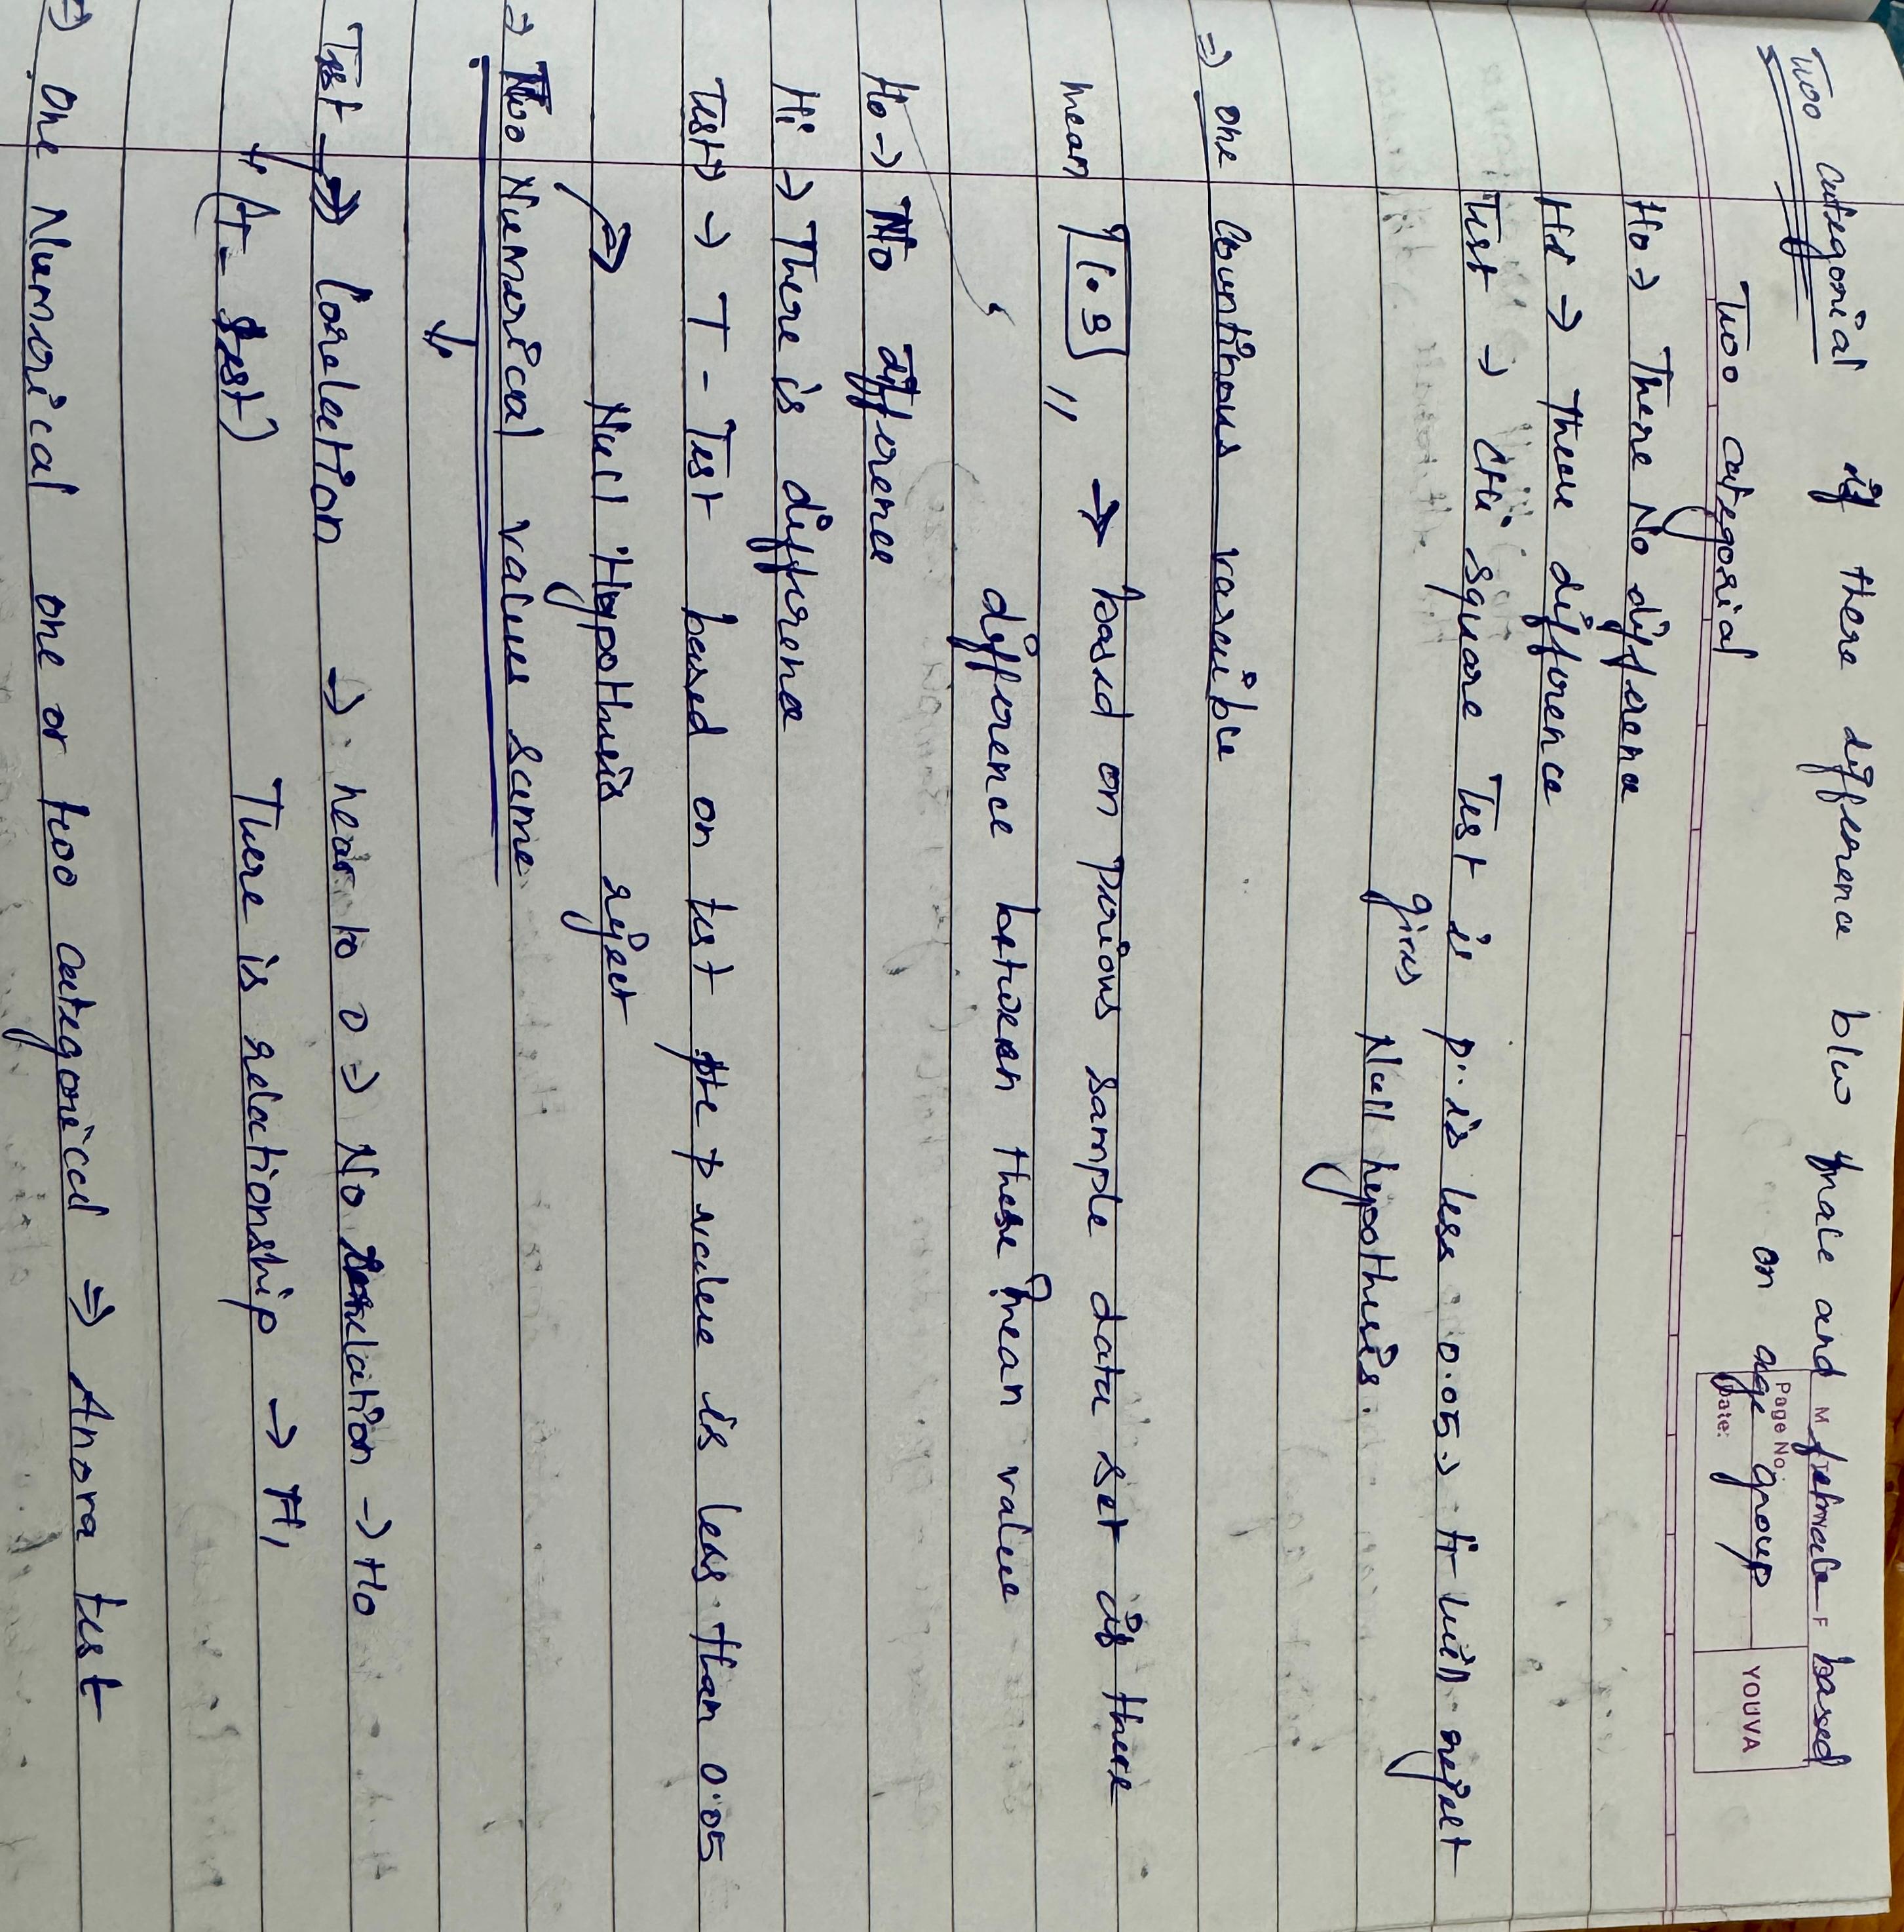 Two categorical if there difference b/w male and female based
on age group
Page No.
Date:
M F
YOUVA
Two categorial
H0 → There No difference
H1 → There difference
Test → Chi square Test is p is less 0.05 → it will reject
gives Null hypothesis.
⇒ one Countinous varaible
mean 1.9 " → based on privious sample data set is there
difference between these mean value
H0 → No difference
H1 → There is difference
Test → T-Test based on test the p value is less than 0.05
→ Null Hypothesis reject
⇒ Two Numerical values same
↓
Test → Corelection → near to 0 → No correlation → H0
↓ (T-test) There is relationship → H1
⇒ one Numorical one or two categorical ⇒ Anova test